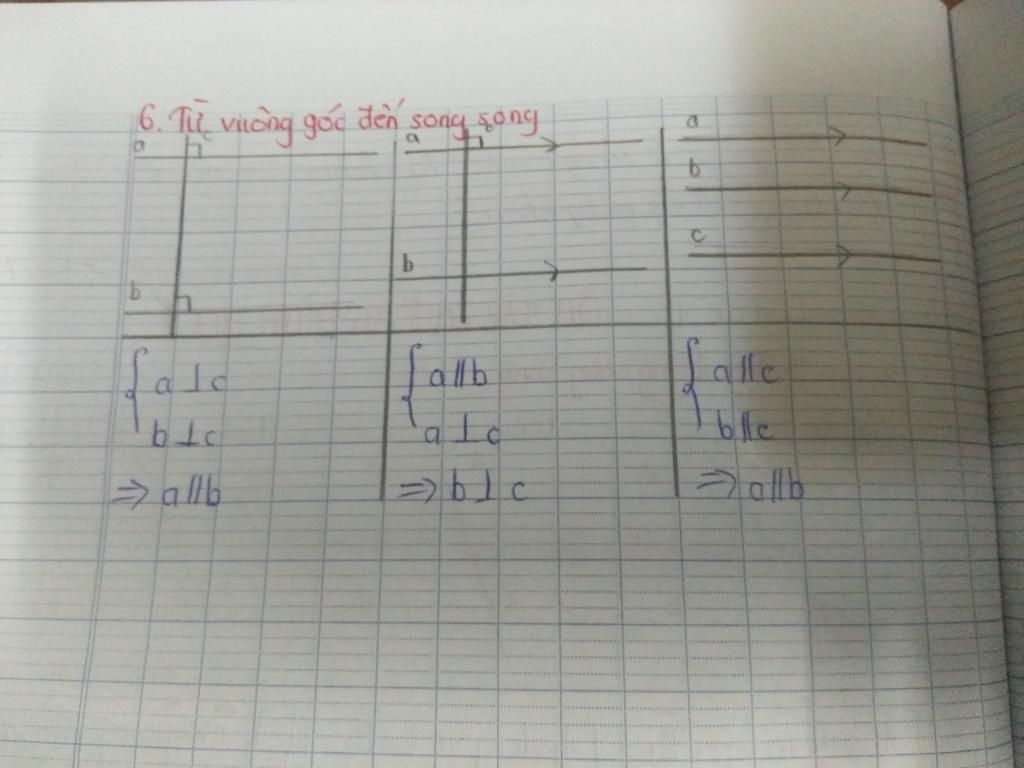 6. Từ vuông góc đến song song
a
b
c
a
b
c
a
b
c
{ a ⊥ c
b ⊥ c
⇒ a // b
{ a // b
a ⊥ c
⇒ b ⊥ c
{ a // c
b // c
⇒ a // b